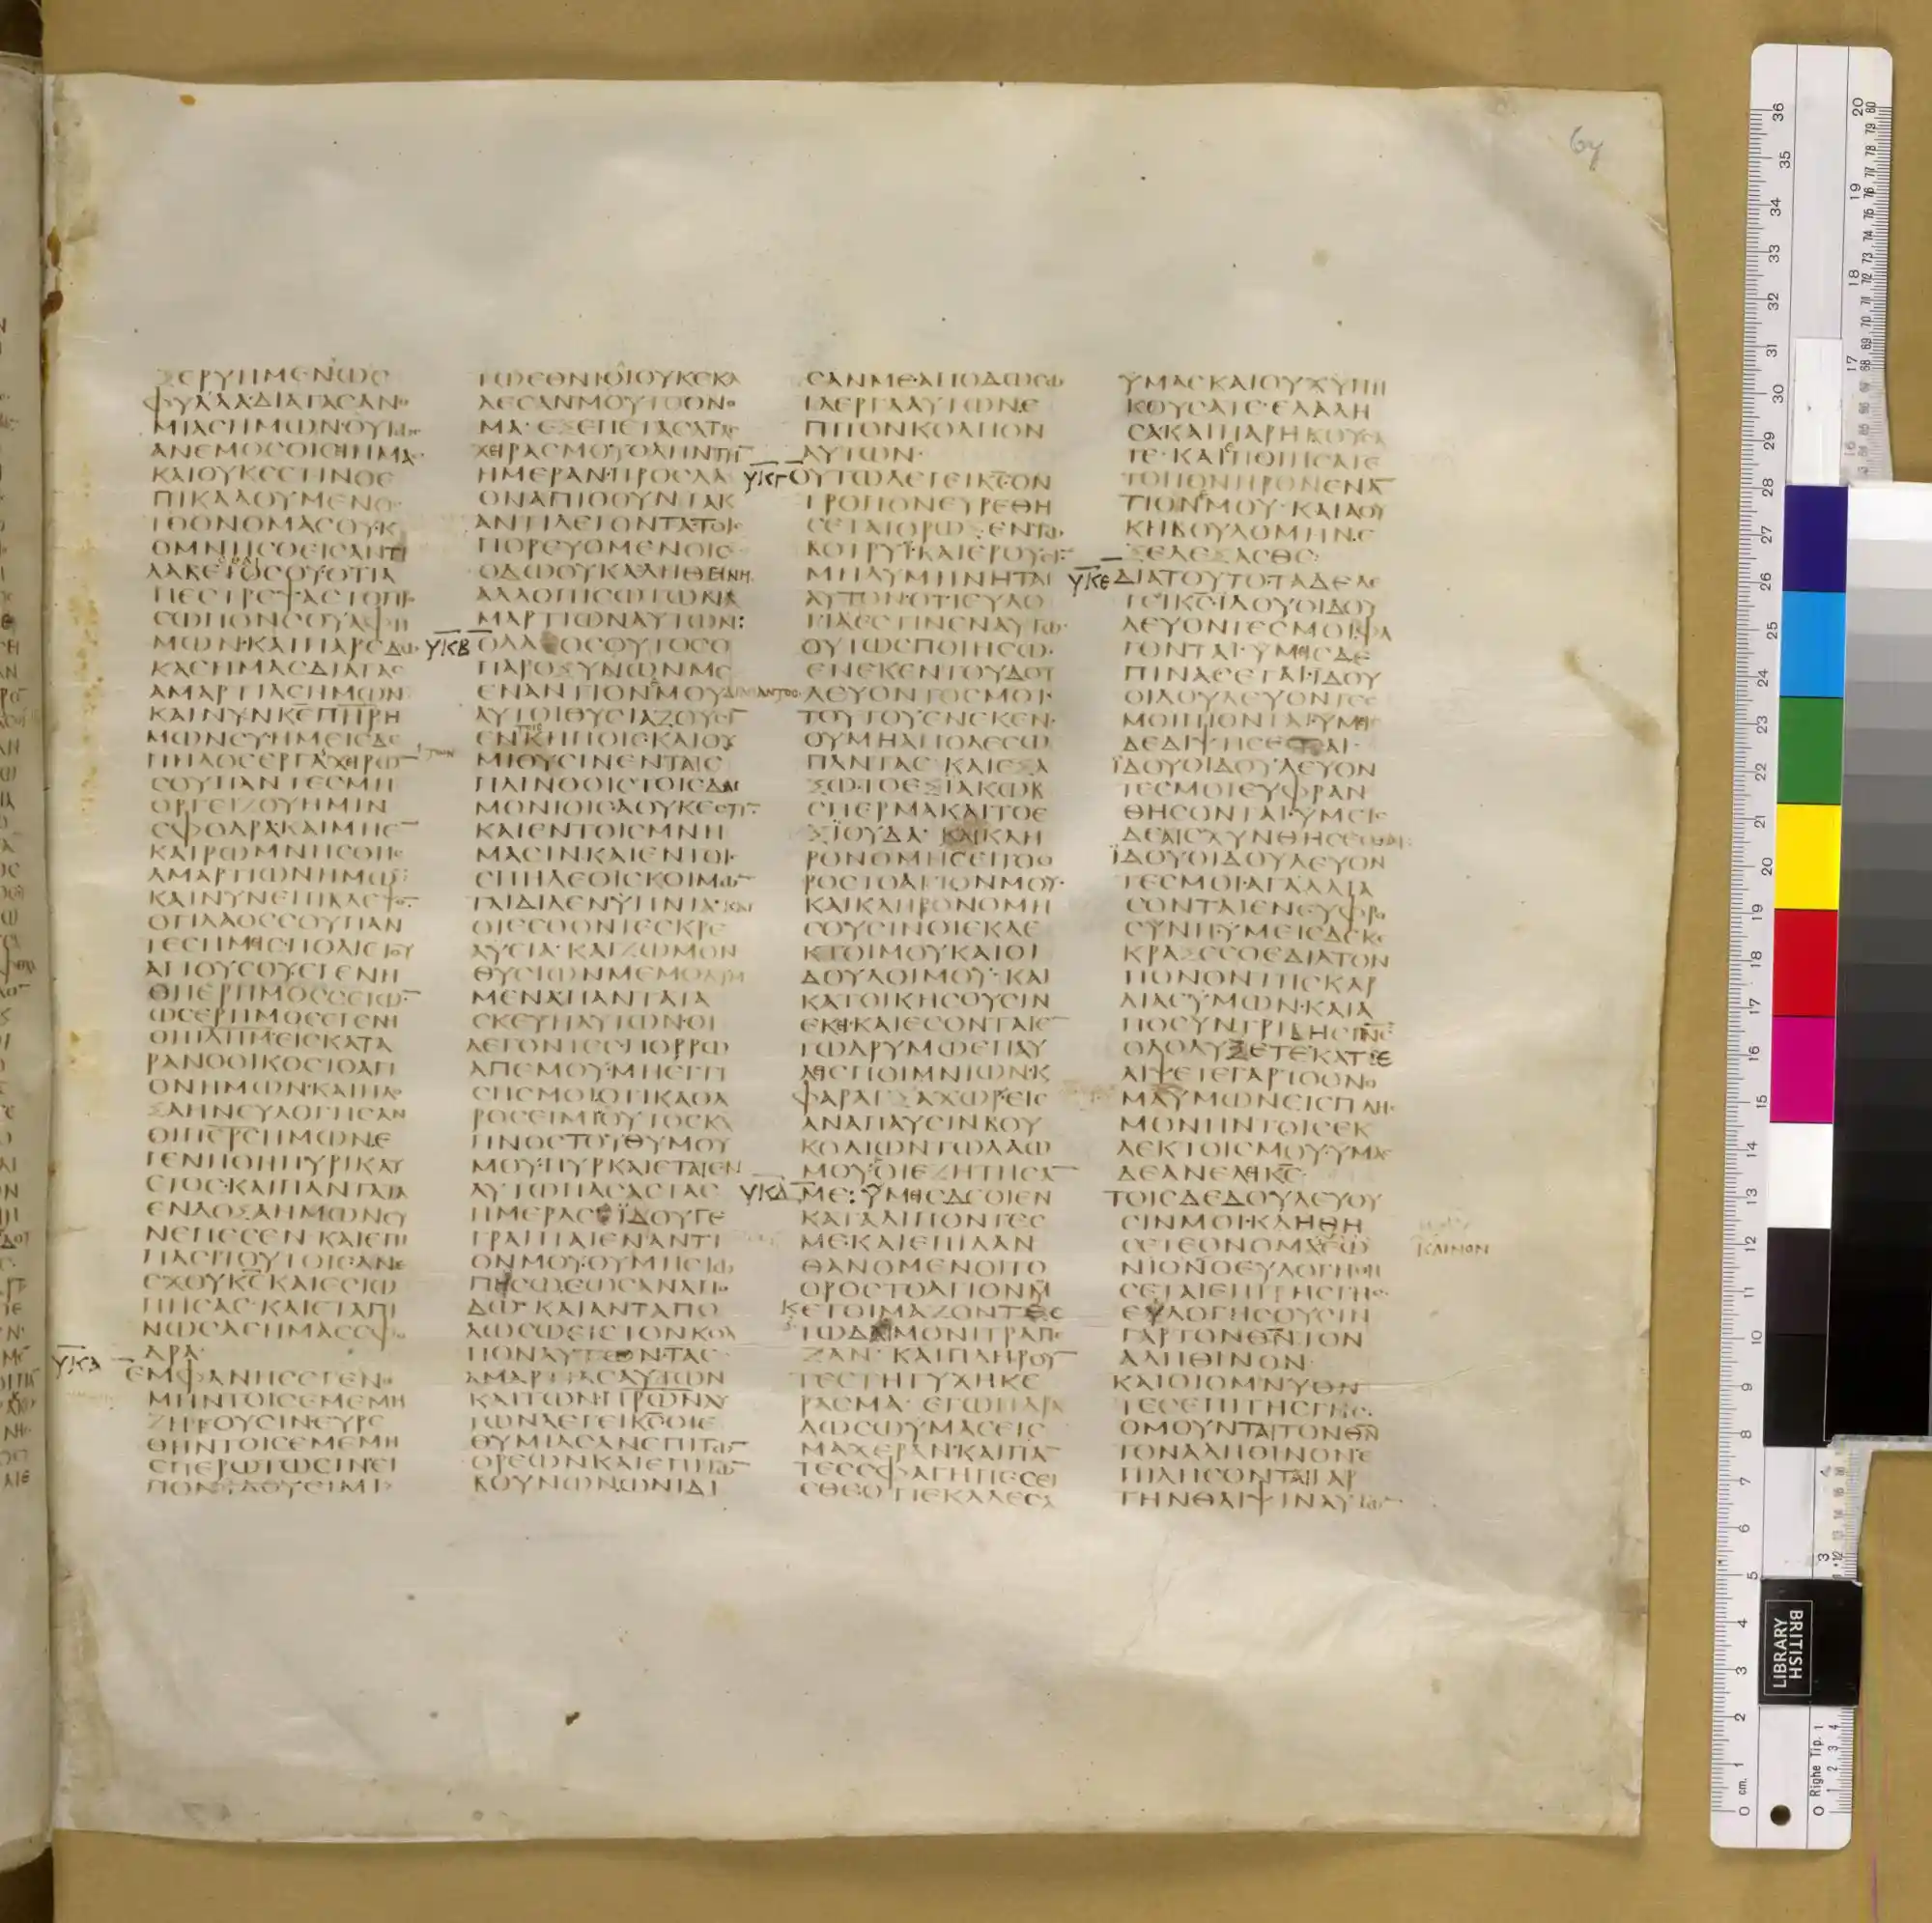 ΞΕΡΥΗΜΕΝΩΣ
ΦΥΛΛΑ·ΔΙΑΤΑΣΑΝΟ
ΜΙΑΣΗΜΩΝ·ΟΥΤΩΣ
ΑΝΕΜΟΣΟΙΣΗΗΜΑΣ
ΚΑΙΟΥΚΕΣΤΙΝΟΕ
ΠΙΚΑΛΟΥΜΕΝΟΣ
ΤΟΟΝΟΜΑΣΟΥ·Κ
ΟΜΝΗΣΘΕΙΣΑΝΤΙ
ΛΑΒΕΣΘΑΙΣΟΥ·ΟΤΙΑ
ΠΕΣΤΡΕΨΑΣΤΟΠΡ
ΣΩΠΟΝΣΟΥΑΦΗ
ΜΩΝ·ΚΑΙΠΑΡΕΔΩ
ΚΑΣΗΜΑΣΔΙΑΤΑΣ
ΑΜΑΡΤΙΑΣΗΜΩΝ
ΚΑΙΝΥΝΚΕΠΗΡΗ
ΜΩΝΣΥΗΜΕΙΣΔΕ
ΠΗΛΟΣΕΡΓΑΧΙΡΩ
ΣΟΥΠΑΝΤΕΣΜΗ
ΟΡΓΕΙΖΟΥΗΜΙΝ
ΣΦΟΔΡΑ·ΚΑΙΜΗΕ
ΚΑΙΡΩΜΝΗΣΘΗΣ
ΑΜΑΡΤΙΩΝΗΜΩΝ
ΚΑΙΝΥΝΕΠΙΒΛΕΨΟΝ
ΟΤΙΛΑΟΣΣΟΥΠΑΝ
ΤΕΣΗΜΙΣ·ΠΟΛΙΣΤΟΥ
ΑΓΙΟΥΣΟΥΕΓΕΝΗ
ΘΗΕΡΗΜΟΣΣΕΙΩΝ
ΩΣΕΡΗΜΟΣΕΓΕΝΗ
ΘΗΙΛΗΜ·ΕΙΣΚΑΤΑ
ΡΑΝΟΟΙΚΟΣΤΟΑΓΙ
ΟΝΗΜΩΝ·ΚΑΙΗΔΟ
ΞΑΗΝΕΥΛΟΓΗΣΑΝ
ΟΙΠΕΡΕΣΗΜΩΝΕ
ΓΕΝΗΘΗΠΥΡΙΚΑΥ
ΣΤΟΣ·ΚΑΙΠΑΝΤΑΤΑ
ΕΝΔΟΞΑΗΜΩΝΣΥ
ΝΕΠΕΣΕΝ·ΚΑΙΕΠΙ
ΠΑΣΙΤΟΥΤΟΙΣ·ΑΝΕ
ΣΧΟΥΚΕΚΑΙΕΣΙΩ
ΠΗΣΑΣ·ΚΑΙΕΤΑΠΙ
ΝΩΣΑΣΗΜΑΣΣΦΟ
ΔΡΑ·
ΥΚΑ
ΕΜΦΑΝΗΣΕΓΕΝΟ
ΜΗΝΤΟΙΣΕΜΕΜΗ
ΖΗΤΟΥΣΙΝ·ΕΥΡΕ
ΘΗΝΤΟΙΣΕΜΕΜΗ
ΕΠΕΡΩΤΩΣΙΝΕΙ
ΠΟΝΙΔΟΥΕΙΜΙ
ΤΩΕΘΝΙΟΙΟΥΚΕΚΑ
ΛΕΣΑΝΜΟΥΤΟΟΝΟ
ΜΑ·ΕΞΕΠΕΤΑΣΑΤΑΣ
ΧΙΡΑΣΜΟΥΟΛΗΝΤΗΝ
ΗΜΕΡΑΝ·ΠΡΟΣΛΑ
ΟΝΑΠΙΘΟΥΝΤΑΚ
ΑΝΤΙΛΕΓΟΝΤΑΤΟΙΣ
ΠΟΡΕΥΟΜΕΝΟΙΣ
ΟΔΩΟΥΚΑΛΗΘΕΙΝΗ
ΑΛΛΟΠΙΣΩΤΩΝΑ
ΜΑΡΤΙΩΝΑΥΤΩΝ:
ΥΚΒ
ΟΛΑΟΣΟΥΤΟΣΟ
ΠΑΡΟΞΥΝΩΝΜΕ
ΕΝΑΝΤΙΟΝΕΜΟΥΔΙΑΠΑΝΤΟΣ
ΑΥΤΟΙΘΥΣΙΑΖΟΥΣΙΝ
ΕΝΚΗΠΟΙΣ·ΚΑΙΘΥ
ΜΙΟΥΣΙΝΕΝΤΑΙΣ
ΠΛΙΝΘΟΙΣΤΟΙΣΔΑΙ
ΜΟΝΙΟΙΣΑΟΥΚΕΣΤΙΝ
ΚΑΙΕΝΤΟΙΣΜΝΗ
ΜΑΣΙΝ·ΚΑΙΕΝΤΟΙΣ
ΣΠΗΛΕΟΙΣΚΟΙΜΩΝ
ΤΑΙΔΙΑΕΝΥΠΝΙΑ·ΚΑΙ
ΟΙΕΣΘΟΝΤΕΣΚΡΕ
ΑΥΕΙΑ·ΚΑΙΖΩΜΟΝ
ΘΥΣΙΩΝΜΕΜΟΛΥΜ
ΜΕΝΑΠΑΝΤΑΤΑ
ΣΚΕΥΗΑΥΤΩΝ·ΟΙ
ΛΕΓΟΝΤΕΣΠΟΡΡΩ
ΑΠΕΜΟΥ·ΜΗΕΓΓΙ
ΣΗΣΜΟΙΟΤΙΚΑΘΑ
ΡΟΣΕΙΜΙΟΥΤΟΣΚΑ
ΠΝΟΣΤΟΥΘΥΜΟΥ
ΜΟΥ·ΠΥΡΚΑΙΕΤΑΙΕΝ
ΑΥΤΩΠΑΣΑΣΤΑΣ
ΗΜΕΡΑΣ·ΪΔΟΥΓΕ
ΓΡΑΠΤΑΙΕΝΑΝΤΙ
ΟΝΜΟΥ·ΟΥΜΗΣΙΩ
ΠΗΣΩΕΩΣΑΝΑΠΟ
ΔΩ·ΚΑΙΑΝΤΑΠΟ
ΔΩΣΩΕΙΣΤΟΝΚΟΛ
ΠΟΝΑΥΤΩΝ·ΤΑΣ
ΑΜΑΡΤΙΑΣΑΥΤΩΝ
ΚΑΙΤΩΝΠΡΩΝΑΥ
ΤΩΝΛΕΓΕΙΚΣΟΙΕ
ΘΥΜΙΑΣΑΝΕΠΙΤΩΝ
ΟΡΕΩΝΚΑΙΕΠΙΤΩΝ
ΒΟΥΝΩΝΩΝΙΔΙ
ΣΑΝΜΕ·ΑΠΟΔΩΣΩ
ΤΑΕΡΓΑΑΥΤΩΝΕ
ΠΙΤΟΝΚΟΛΠΟΝ
ΑΥΤΩΝ·
ΥΚΓ
ΟΥΤΩΛΕΓΕΙΚΣΟΝ
ΤΡΟΠΟΝΕΥΡΕΘΗ
ΣΕΤΑΙΟΡΩΞΕΝΤΩ
ΒΟΤΡΥΪ·ΚΑΙΕΡΟΥΣΙΝ
ΜΗΛΥΜΗΝΗΤΑΙ
ΑΥΤΟΝ·ΟΤΙΕΥΛΟ
ΓΙΑΕΣΤΙΝΕΝΑΥΤΩ
ΟΥΤΩΣΠΟΙΗΣΩ·
ΕΝΕΚΕΝΤΟΥΔΟΥ
ΛΕΥΟΝΤΟΣΜΟΙ·
ΤΟΥΤΟΥΕΝΕΚΕΝ·
ΟΥΜΗΑΠΟΛΕΣΩ
ΠΑΝΤΑΣ·ΚΑΙΕΞΑ
ΞΩ·ΤΟΕΞΙΑΚΩΒ
ΣΠΕΡΜΑΚΑΙΤΟΕ
ΞΙΟΥΔΑ·ΚΑΙΚΛΗ
ΡΟΝΟΜΗΣΕΙΤΟΟ
ΡΟΣΤΟΑΓΙΟΝΜΟΥ·
ΚΑΙΚΛΗΡΟΝΟΜΗ
ΣΟΥΣΙΝΟΙΕΚΛΕ
ΚΤΟΙΜΟΥΚΑΙΟΙ
ΔΟΥΛΟΙΜΟΥ·ΚΑΙ
ΚΑΤΟΙΚΗΣΟΥΣΙΝ
ΕΚΙ·ΚΑΙΕΣΟΝΤΑΙΕΝ
ΤΩΔΡΥΜΩΕΠΑΥ
ΛΙΣΠΟΙΜΝΙΩΝ·Κ
ΦΑΡΑΓΞΑΧΩΡΕΙΣ
ΑΝΑΠΑΥΣΙΝΒΟΥ
ΚΟΛΙΩΝΤΩΛΑΩ
ΜΟΥΟΙΕΖΗΤΗΣΑΝ
ΥΚΔ
ΜΕ:ΥΜΙΣΔΕΟΙΕΝ
ΚΑΤΑΛΙΠΟΝΤΕΣ
ΜΕ·ΚΑΙΕΠΙΛΑΝ
ΘΑΝΟΜΕΝΟΙΤΟ
ΟΡΟΣΤΟΑΓΙΟΝΜ
ΚΕΤΟΙΜΑΖΟΝΤΕΣ
ΤΩΔΑΙΜΟΝΙΤΡΑΠΕ
ΖΑΝ·ΚΑΙΠΛΗΡΟΥΝ
ΤΕΣΤΗΤΥΧΗΚΕ
ΡΑΣΜΑ·ΕΓΩΠΑΡΑ
ΔΩΣΩΥΜΑΣΕΙΣ
ΜΑΧΕΡΑΝ·ΚΑΙΠΑΝ
ΤΕΣΣΦΑΓΗΠΕΣΕΙ
ΣΘΕΟΤΙΕΚΑΛΕΣΑ
ΥΜΑΣΚΑΙΟΥΧΥΠΗ
ΚΟΥΣΑΤΕ·ΕΛΑΛΗ
ΣΑΚΑΙΠΑΡΗΚΟΥΣΑ
ΤΕ·ΚΑΙΕΠΟΙΗΣΑΤΕ
ΤΟΠΟΝΗΡΟΝΕΝΑΝ
ΤΙΟΝΕΜΟΥ·ΚΑΙΑΟΥ
ΚΗΒΟΥΛΟΜΗΝ·Ε
ΞΕΛΕΞΑΣΘΕ·
ΥΚΕ
ΔΙΑΤΟΥΤΟ·ΤΑΔΕΛΕ
ΓΕΙΚΣ·ΪΔΟΥΟΙΔΟΥ
ΛΕΥΟΝΤΕΣΜΟΙ·ΦΑ
ΓΟΝΤΑΙ·ΥΜΙΣΔΕ
ΠΙΝΑΣΕΤΑΙ·ΙΔΟΥ
ΟΙΔΟΥΛΕΥΟΝΤΕΣ
ΜΟΙΠΙΟΝΤΑΙ·ΥΜΙΣ
ΔΕΔΙΨΗΣΕΣΘΑΙ·
ΪΔΟΥΟΙΔΟΥΛΕΥΟΝ
ΤΕΣΜΟΙΕΥΦΡΑΝ
ΘΗΣΟΝΤΑΙ·ΥΜΕΙΣ
ΔΕΑΙΣΧΥΝΘΗΣΕΣΘΑΙ·
ΪΔΟΥΟΙΔΟΥΛΕΥΟΝ
ΤΕΣΜΟΙ·ΑΓΑΛΛΙΑ
ΣΟΝΤΑΙΕΝΕΥΦΡΟ
ΣΥΝΗ·ΥΜΕΙΣΔΕΚΕ
ΚΡΑΞΕΣΘΕΔΙΑΤΟΝ
ΠΟΝΟΝΤΗΣΚΑΡ
ΔΙΑΣΥΜΩΝ·ΚΑΙΑ
ΠΟΣΥΝΤΡΙΒΗΣΠΝΣ
ΟΛΟΛΥΞΕΤΕ·ΚΑΤΑΛΕ
ΑΙΨΕΤΕΓΑΡΤΟΟΝΟ
ΜΑΥΜΩΝΕΙΣΠΛΗΣ
ΜΟΝΗΝΤΟΙΣΕΚ
ΛΕΚΤΟΙΣΜΟΥ·ΥΜΑΣ
ΔΕΑΝΕΛΙΚΣ·
ΤΟΙΣΔΕΔΟΥΛΕΥΟΥ
ΣΙΝΜΟΙ·ΚΛΗΘΗ
ΣΕΤΕΟΝΟΜΑΕΩ
ΚΑΙΝΟΝ
ΝΙΟΝΟΕΥΛΟΓΗΘΗ
ΣΕΤΑΙΕΠΙΤΗΣΓΗΣ·
ΕΥΛΟΓΗΣΟΥΣΙΝ
ΓΑΡΤΟΝΘΝΤΟΝ
ΑΛΗΘΙΝΟΝ·
ΚΑΙΟΙΟΜΝΥΟΝ
ΤΕΣΕΠΙΤΗΣΓΗΣ·
ΟΜΟΥΝΤΑΙΤΟΝΘΝ
ΤΟΝΑΛΗΘΙΝΟΝ·Ε
ΠΙΛΗΣΟΝΤΑΙΓΑΡ
ΤΗΝΘΛΙΨΙΝΑΥΤΩΝ
64
BRITISH
LIBRARY